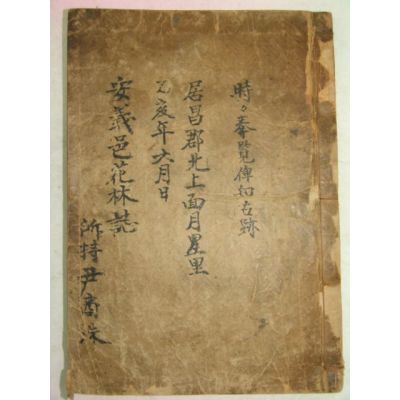 時〃奉覧俾知古跡
居昌郡北上面月星里
乙亥年六月日
安義邑花林誌
所持尹